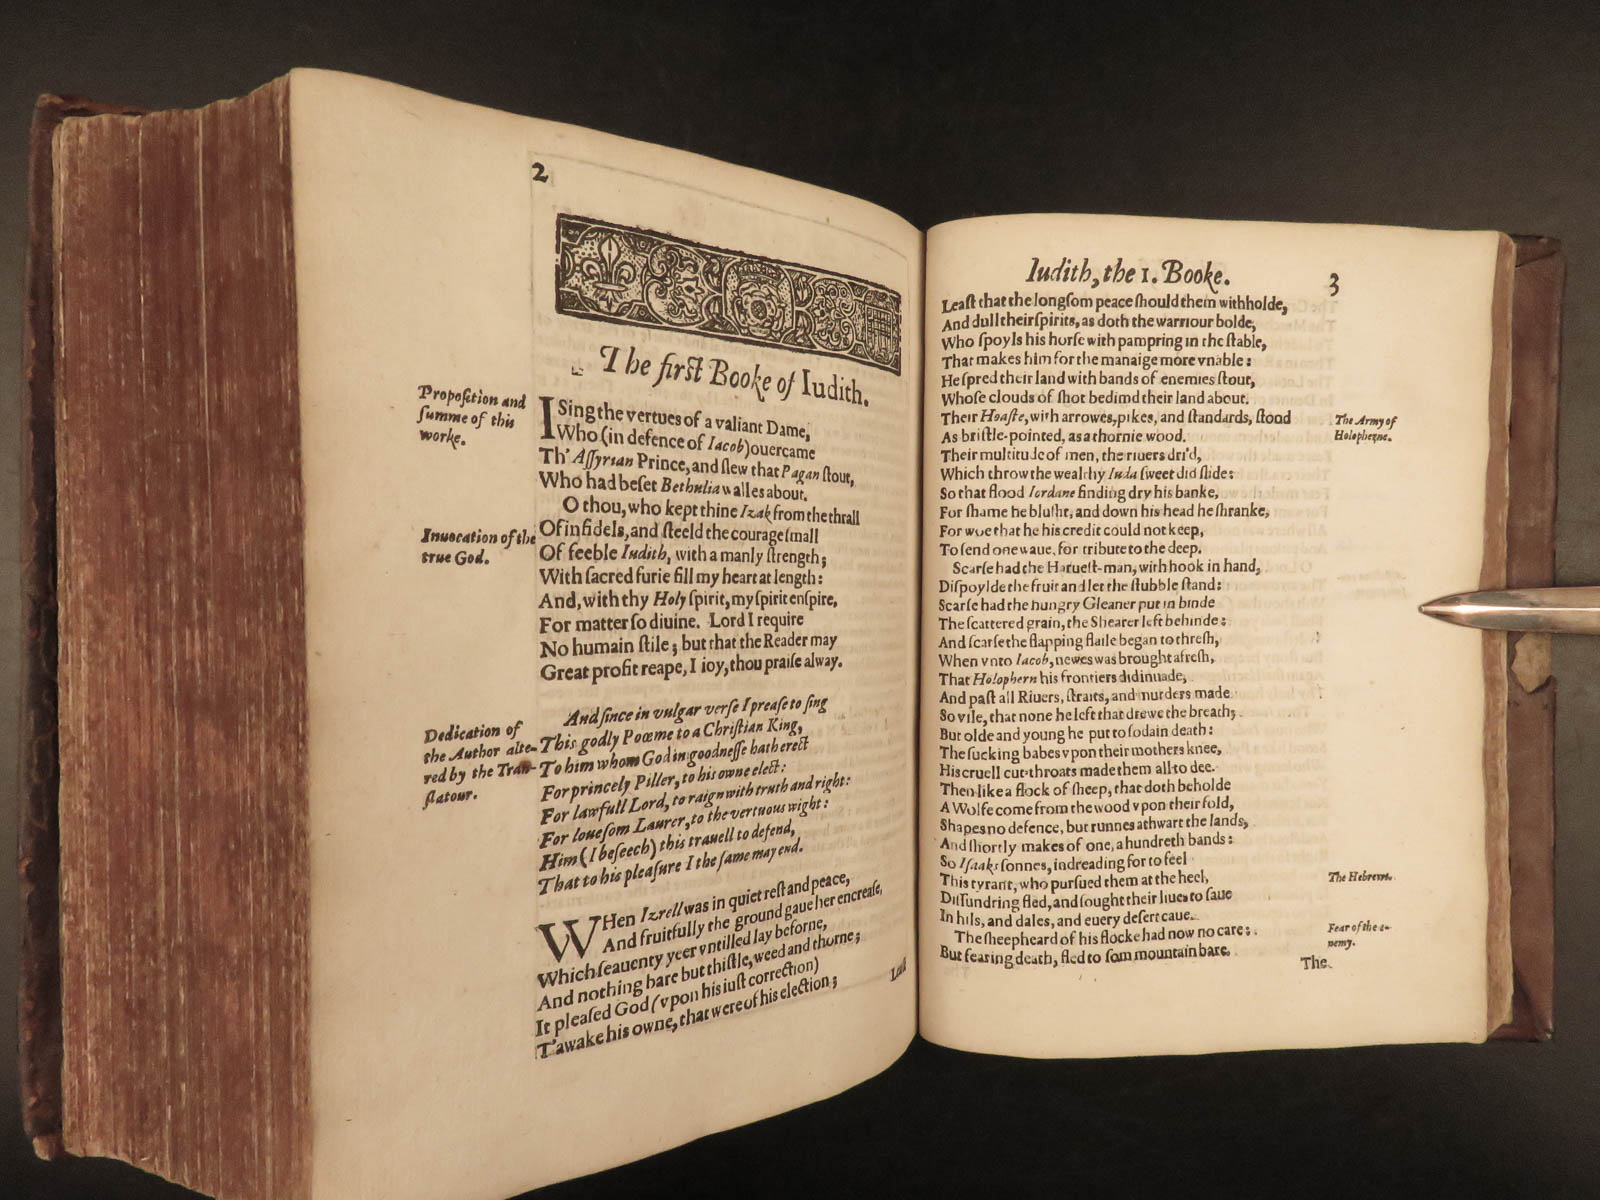 2
The firſt Booke of Iudith.
Propoſition and
ſumme of this
worke.
I Sing the vertues of a valiant Dame,
Who (in defence of Iacob) ouercame
Th' Aſſyrian Prince, and ſlew that Pagan ſtout,
Who had beſet Bethulia walles about.
O thou, who kept thine Izak from the thrall
Invocation of the
true God.
Of infidels, and ſteeld the courage ſmall
Of feeble Iudith, with a manly ſtrength;
With ſacred furie fill my heart at length:
And, with thy Holy ſpirit, my ſpirit enſpire,
For matter ſo diuine. Lord I require
No humain ſtile; but that the Reader may
Great profit reape, I ioy, thou praiſe alway.
And ſince in vulgar verſe I preaſe to ſing
Dedication of
the Author alte-
red by the Tran-
ſlatour.
This godly Poœme to a Chriſtian King,
To him whom God in goodneſſe hath erect
For princely Piller, to his owne elect:
For lawfull Lord, to raign with truth and right:
For loueſom Laurer, to the vertuous wight:
Him (I beſeech) this trauell to defend,
That to his pleaſure I the ſame may end.
WHen Izrell was in quiet reſt and peace,
And fruitfully the ground gaue her encreaſe,
Which ſeauenty yeer vntilled lay beforne,
And nothing bare but thiſtle, weed and thorne;
It pleaſed God (vpon his iuſt correction)
T'awake his owne, that were of his election;
Leaſt
Iudith, the 1. Booke.
3
Leaſt that the longſom peace ſhould them withholde,
And dull their ſpirits, as doth the warriour bolde,
Who ſpoyls his horſe with pampring in the ſtable,
That makes him for the manaige more vnable:
He ſpred their land with bands of enemies ſtout,
Whoſe clouds of ſhot bedimd their land about.
Their Hoaſte, with arrowes, pikes, and ſtandards, ſtood
The Army of
Holopherne.
As briſtle-pointed, as a thornie wood.
Their multitude of men, the riuers dri'd,
Which throw the wealthy Iuda ſweet did ſlide:
So that flood Iordane finding dry his banke,
For ſhame he bluſht, and down his head he ſhranke,
For woe that he his credit could not keep,
To ſend one waue, for tribute to the deep.
Scarſe had the Harueſt-man, with hook in hand,
Diſpoylde the fruit and let the ſtubble ſtand:
Scarſe had the hungry Gleaner put in binde
The ſcattered grain, the Shearer left behinde:
And ſcarſe the flapping flaile began to threſh,
When vnto Iacob, newes was brought afreſh,
That Holophern his frontiers did inuade,
And paſt all Riuers, ſtraits, and murders made
So vile, that none he left that drewe the breath;
But olde and young he put to ſodain death:
The ſucking babes vpon their mothers knee,
His cruell cut-throats made them all to dee.
Then like a flock of ſheep, that doth beholde
A Wolfe come from the wood vpon their fold,
Shapes no defence, but runnes athwart the lands,
And ſhortly makes of one, a hundreth bands:
So Iſaaks ſonnes, in dreading for to feel
This tyrant, who purſued them at the heel,
The Hebrews.
Diſſundring fled, and ſought their liues to ſaue
In hils, and dales, and euery deſert caue.
The ſheepheard of his flocke had now no care;
Fear of the e-
nemy.
But fearing death, fled to ſom mountain bare.
The